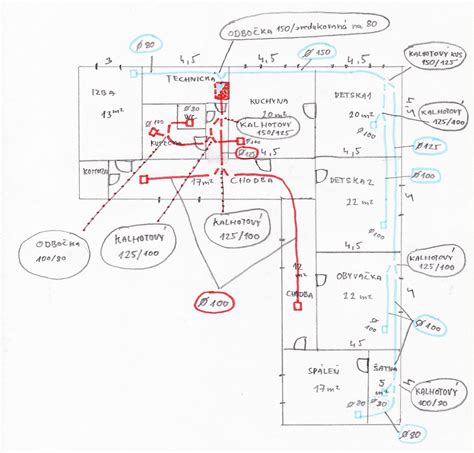 ODBOČKA 150/zredukovaná na 80
Ø 80
4,5
4,5
Ø 150
4,5
KALHOTOVÝ KUS
150/125
3
TECHNICKÁ
IZBA
13 m²
Ø 80
WC
KUCHYNA
20 m²
DETSKÁ 1
20 m²
KALHOTOVÝ
125/100
KALHOTOVÝ
150/125
Ø 100
Ø 100
Ø 125
4,5
4,5
Ø 125
KOMORA
17 m²
CHODBA
DETSKÁ 2
22 m²
Ø 100
ODBOČKA
100/80
KALHOTOVÝ
125/100
KALHOTOVÝ
125/100
4,5
KALHOTOVÝ
125/100
12
m²
CHODBA
OBÝVAČKA
22 m²
Ø 100
Ø 100
4,5
4,5
SPÁLEŇ
17 m²
ŠATNÍK
5
m²
KALHOTOVÝ
100/80
Ø 80
Ø 80
Ø 80